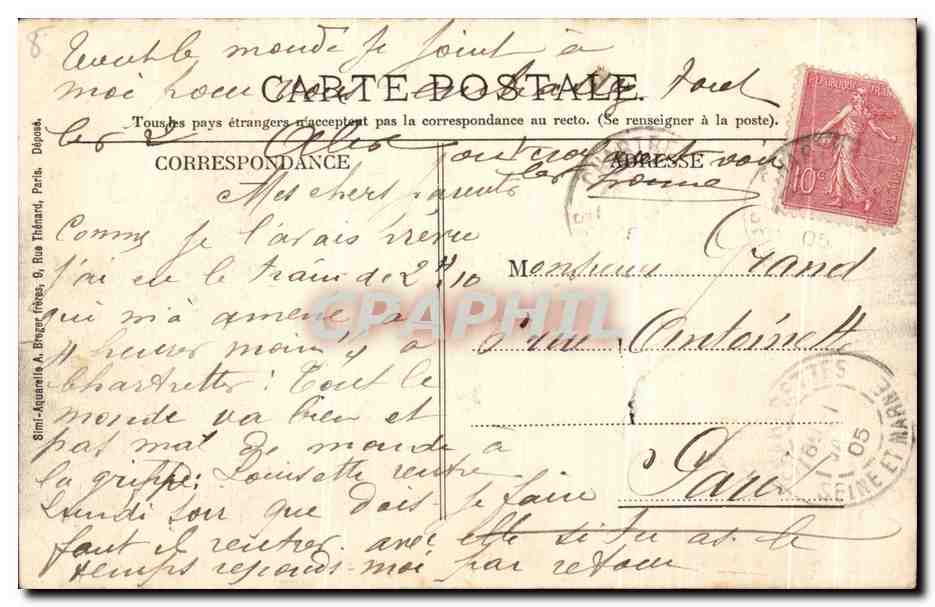 8
Tout le monde se joint à
moi pour vous
CARTE POSTALE
Tous les pays étrangers n'acceptent pas la correspondance au recto. (Se renseigner à la poste).
CORRESPONDANCE
ADRESSE
Mes chers parents
Comme je l'avais prévu
j'ai eu le train de 2 H 10
qui m'a amené à
4 heures moins ¼ à
Chartrettes : Tout le
monde va bien et
pas mal de monde à
la grippe : Louisette rentre
Lundi soir que dois je faire
faut il rentrer avec elle si tu as le
temps reponds-moi par retour
Monsieur Grand
rue Antoinette
Paris
RÉPUBLIQUE FRANÇAISE
10 c
CHARTRETTES
05
SEINE ET MARNE
Simi-Aquarelle A. Breger frères, 9, Rue Thénard, Paris. Déposé.
CPAPHIL